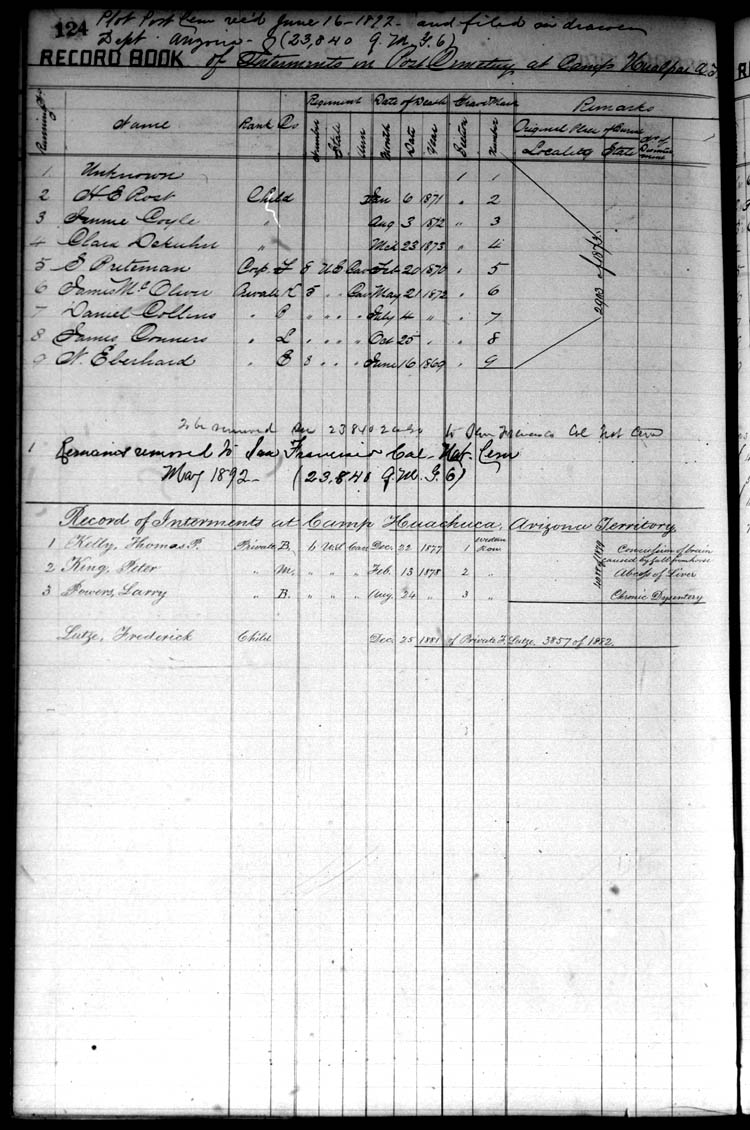 124 Plot Post Cem rec'd June 16-1892- and filed in drawer
Dept Arizona- (23,840 Q.M.G.6)
RECORD BOOK of Interments in Post Cemetery at Camp Hualpai A.T.
Running No. Name Rank Co Regiment Number State Arm Date of Death Month Date Year Grave Mark Section Number Remarks Original Place of Burial Locality State No of Disinterment
1 Unknown 1 1
2 H E Rost Child Jan 6 1871 " 2
3 Jennie Coyle " Aug 3 1872 " 3
4 Clara Dekuhn " Mch 23 1873 " 4
5 S Preteman Corp. F 8 U.S Cav Feb 20 1870 " 5
6 James Mc Oliver Private K 5 " Cav May 21 1872 " 6
7 Daniel Collins " " " " July 4 " " 7
8 James Conners " L " " " Oct 25 " " 8
9 N. Eberhard " E 8 " " June 16 1869 " 9
2903 of 1873.
To be removed 23840 to San Francisco Cal Nat Cem
1 Remains removed to San Francisco Cal- Nat. Cem
May 1892- (23,840 Q.M.G.6)
Record of Interments at Camp Huachuca, Arizona Territory.
1 Kelly, Thomas P. Private B. 6 Cav Dec. 22 1877 1 Row Concussion of brain
caused by fall from horse
2 King, Peter " M. " " " Feb. 13 1878 2 " Abcess of Liver
3 Powers, Larry " B. " " " Aug. 24 " 3 " Chronic Dysentery
of 1879
Lutze, Frederick Child Dec. 25 1881 of Private F. Lutze. 3857 of 1882.